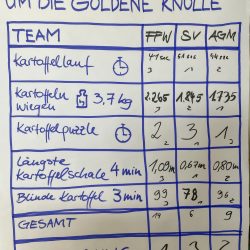 UM DIE GOLDENE KNOLLE
TEAM FFW SV AGM
Kartoffellauf 41sec 51sec 44sec
3 1 2
Kartoffeln wiegen 3,7kg 2.265 1.845 1.735
3 2 1
Kartoffelpuzzle 2 3 1
Längste Kartoffelschale 4min 1,09m 0,67m 0,80m
3 1 2
Blinde Kartoffel 3min 99 78 96
3 1 2
GESAMT 14 6 9
1 3 2